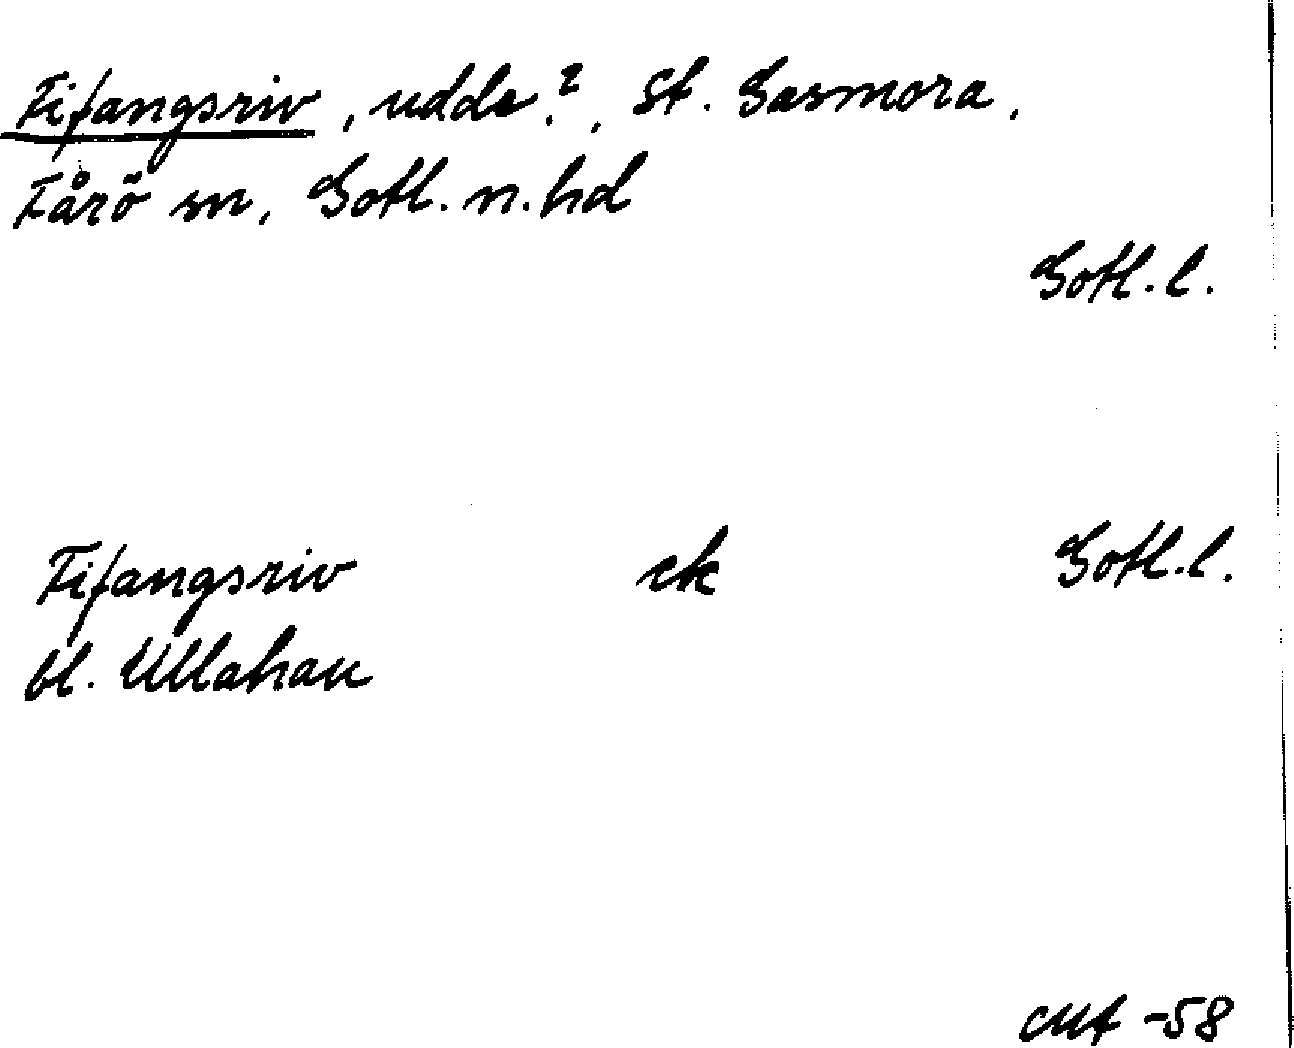 Fifangsriv, udde.?, St. Gasmora,
Fårö sn, Gotl. n. hd
Gotl. l.
Fifangsriv ek Gotl. l.
bl. Ullahau
-58